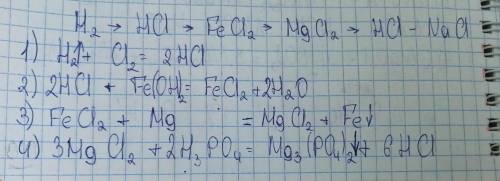 H₂ → HCl → FeCl₂ → MgCl₂ → HCl – NaCl
1) H₂↑ + Cl₂ = 2HCl
2) 2HCl + Fe(OH)₂ = FeCl₂ + 2H₂O
3) FeCl₂ + Mg = MgCl₂ + Fe↓
4) 3MgCl₂ + 2H₃PO₄ = Mg₃(PO₄)₂↓ + 6HCl